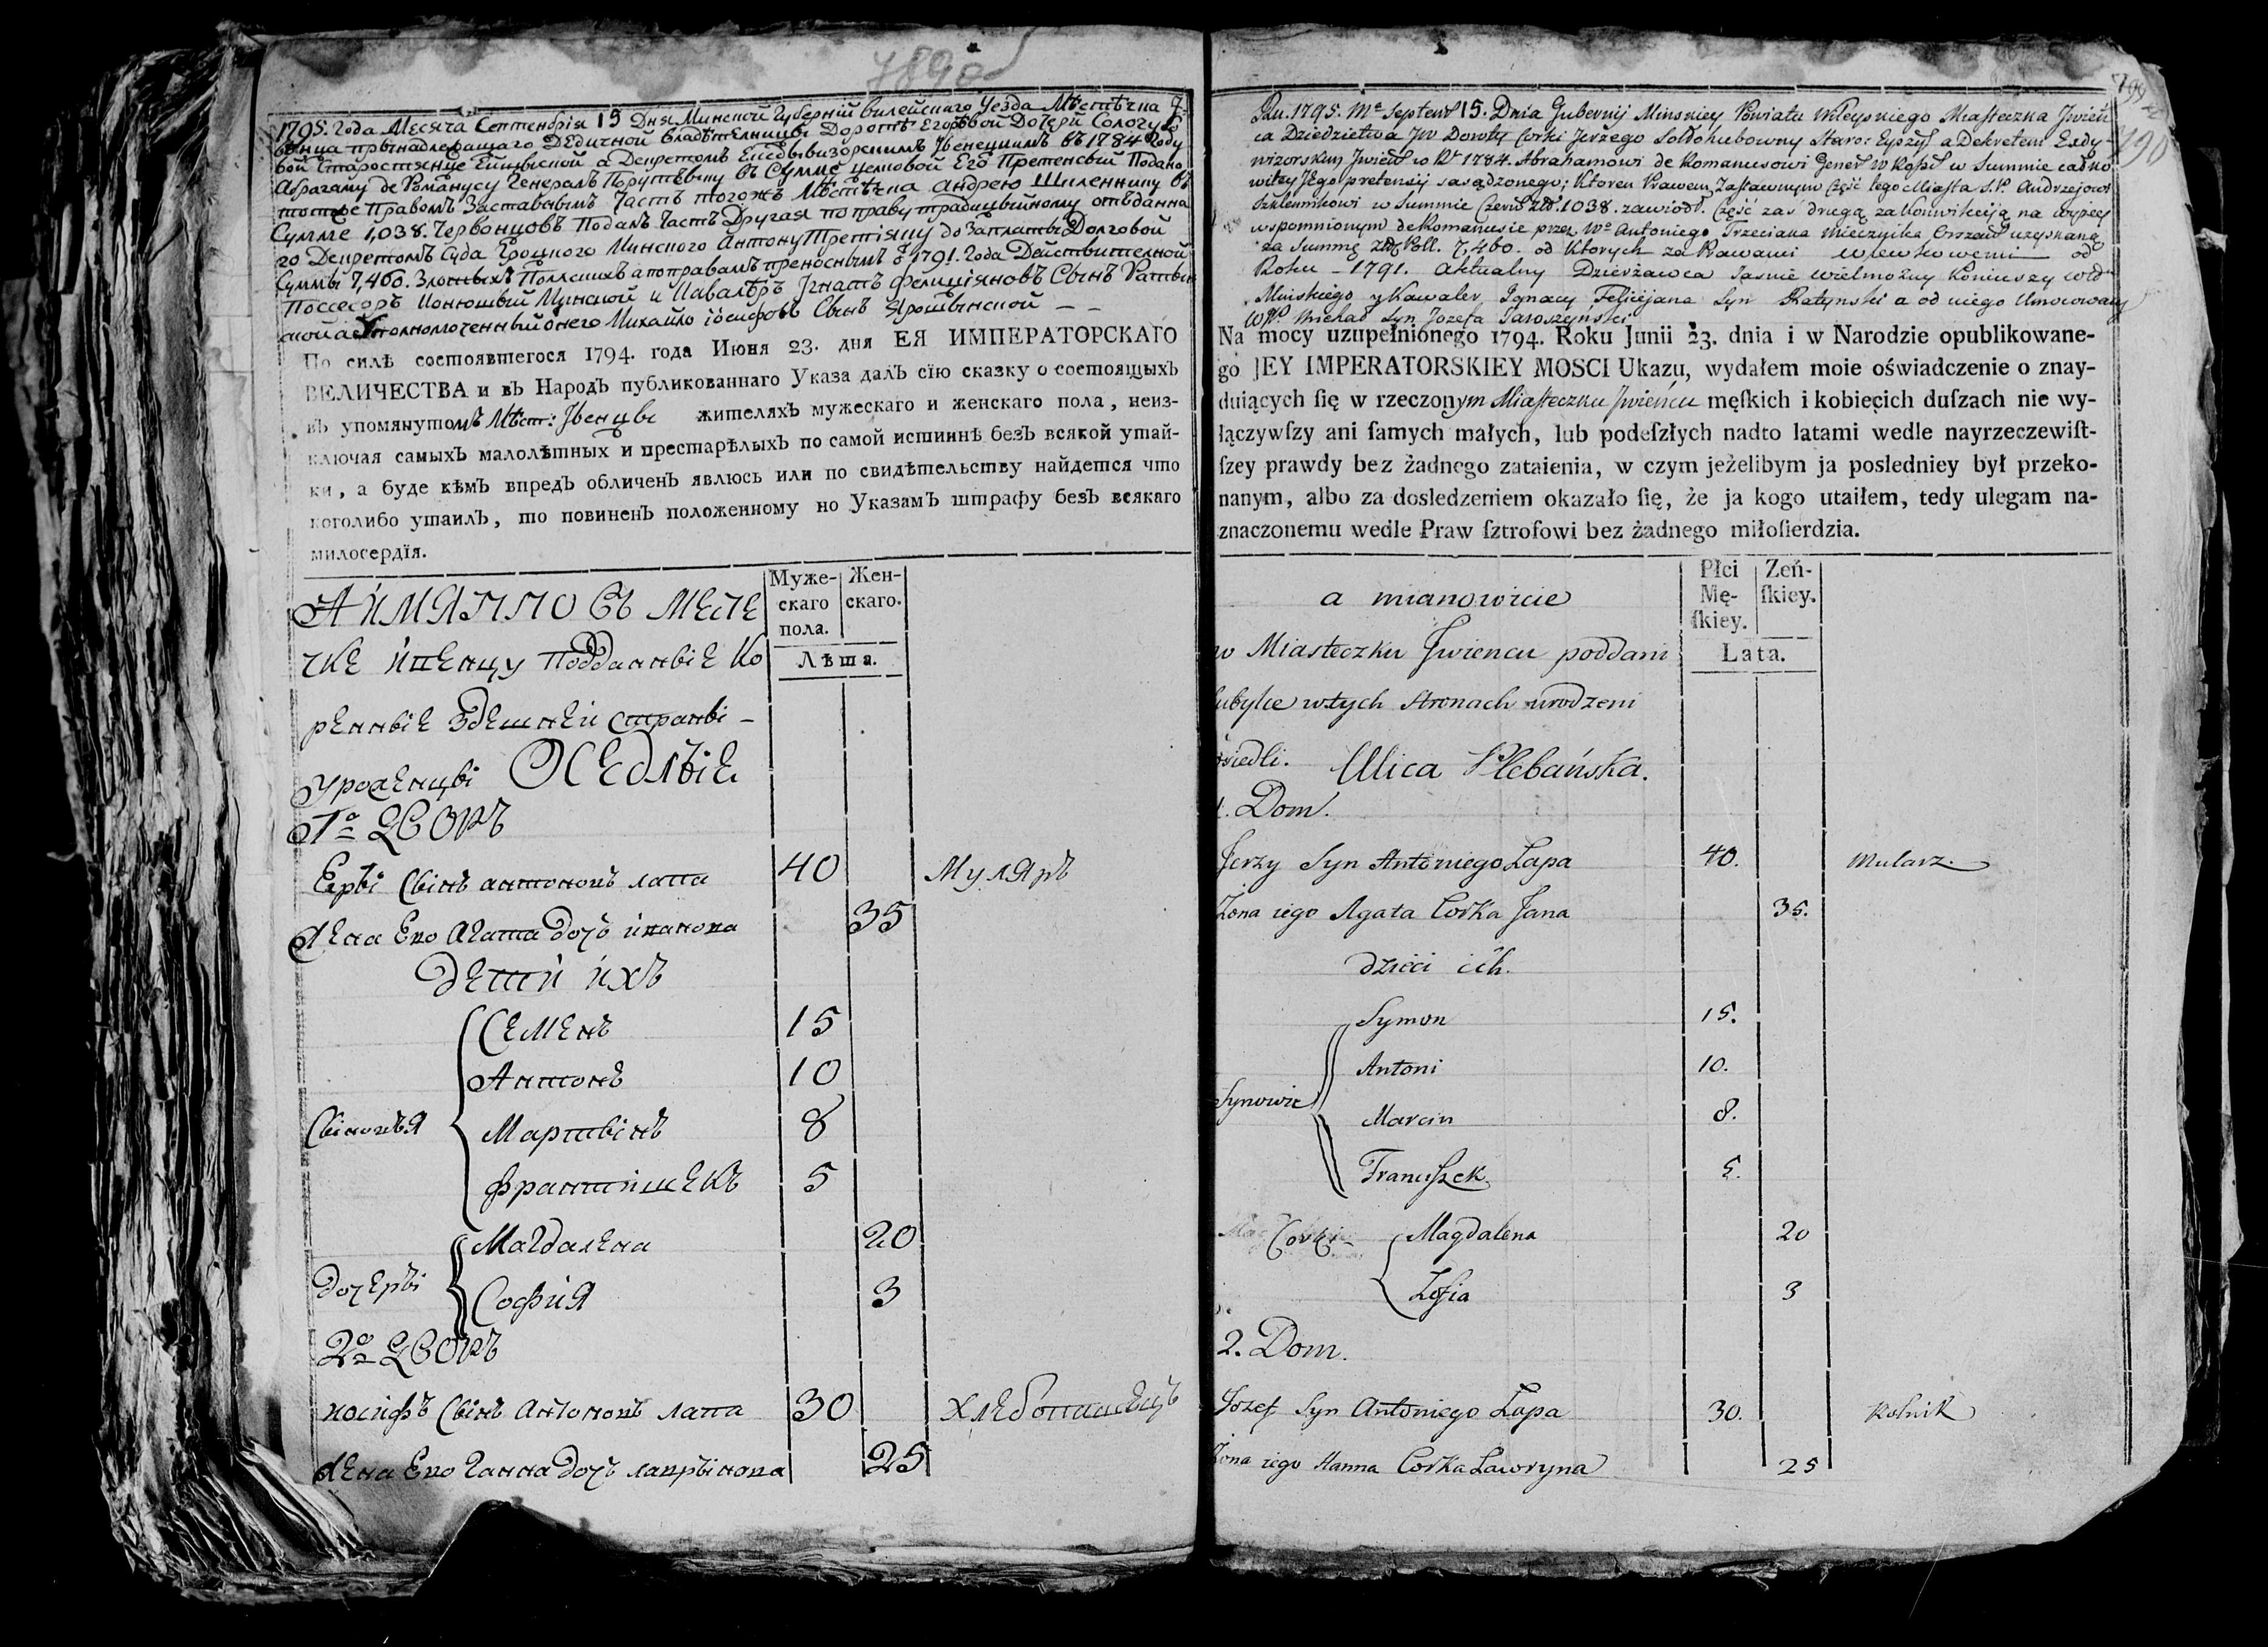 7890
1795. Года Месяча Септембрiя 15 Дня Минской Губернiй Вилейскаго Уезда Мѣстѣчка
венца прынадлежащаго Дедичной Владѣтелницы Доротѣ Егоровой Дочери Сологу
вой Старостянце Ейшыской а Декретомъ Ексдывизорскимъ Ивенецкимъ въ 1784 Году
Абрагаму де Романусу Генералъ Поручыку въ Сумме целковой Его Претенсый Подано
тое Правомъ Заставнымъ Часть тогожъ Мѣстѣчка Андрею Шкленнику въ
Сумме 1,038. Червонцовъ Подалъ Часть Другая по праву традицыйному отъданна
го Декретомъ Суда Минского Антону Третiяку до Заплаты Долговой
Суммы 7,460. Злотыхъ Полскихъ а по правамъ преноснымъ 1791. Года Действителной
Поссесоръ Конюшый Минской и Кавалѣръ Игнатъ Фелицiяновъ Сынъ Ратын
ской а Уполномоченный Михайло Iосифовъ Сынъ Ярошынской — —
По силѣ состоявшегося 1794. года Июня 23. дня ЕЯ ИМПЕРАТОРСКАГО
ВЕЛИЧЕСТВА и въ Народъ публикованнаго Указа далъ сїю сказку о состоящыхъ
въ упомянутомъ Мѣст: Ивенцы жителяхъ мужескаго и женскаго пола, неиз-
ключая самыхъ малолѣтныхъ и престарѣлыхъ по самой истиннѣ безъ всякой утай-
ки, а буде кѣмъ впредъ обличенъ явлюсь или по свидѣтельству найдется что
коголибо утаилъ, то повиненъ положенному по Указамъ штрафу безъ всякаго
милосердїя.
Муже-
скаго
пола.
Жен-
скаго.
Лѣта.
А ИМЯННО ВЪ МЕСТЕ
ЧКЕ Ивенцу Подданные Ко
ренные Здешней страны —
уроженцы ОСЕДЛЫЕ
1о ДВОРЪ
Еры Сынъ антоновъ лапа 40 Муляръ
Жена Ево Агата дочъ иванова 35
Дети ихъ
Сыновъя
Семенъ 15
Антонъ 10
Мартынъ 8
Францишекъ 5
Дочеры
Магдалена 20
София 3
2о ДВОРЪ
иосифъ Сынъ Антоновъ лапа 30 Хлебопашецъ
Жена Ево Ганна дочъ лаврынова 25
799
790
Rku. 1795. Mca Septemb 15. Dnia Gubernij Minskiey Powiatu Wileyskiego Miasteczka Jwień
ca Dziedzictwa JW Doroty Corki Jerzego Sołłohubowny Staro: Eyszys a Dekretem Exdy
wizorskim Jwień w Rk 1784. Abrahamowi de Romanusowi Gener w Summie całko
witey Jego pretensij sasądzonego; Ktoren Prawem Zastawnym Część tego Miasta S.P. Andrzejowi
Szklennikowi w Summie Czerw Złł. 1038. zawiodł. Część zaś drugą za konwikcyją na
wspomnionym deRomanusie przez Wo Antoniego Trzeciaka Mieczyika uzyskaną
za Summę złł Poll. 7,460. od Ktorych za Prawami wlewkowemi od
Roku – 1791. aktualny Dzierżawca Jaśnie Wielmożny Koniuszy
Miński­ego y Kawaler Ignacy Felicijana Syn Ratynski a od niego Umocowany
WJP. Michał Syn Jozefa Jaroszyński.
Na mocy uzupełnionego 1794. Roku Junii 23. dnia i w Narodzie opublikowane-
go JEY IMPERATORSKIEY MOSCI Ukazu, wydałem moie oświadczenie o znay-
duiących ſię w rzeczonym Miasteczku Jwieńcu męſkich i kobiecich duſzach nie wy-
łączywſzy ani ſamych małych, lub podeſzłych nadto latami wedle nayrzeczewiſt-
ſzey prawdy bez żadnego zataienia, w czym jeżelibym ja posledniey był przeko-
nanym, albo za dosledzeniem okazało ſię, że ja kogo utaiłem, tedy ulegam na-
znaczonemu wedle Praw ſztrofowi bez żadnego miłoſierdzia.
Płci
Mę-
ſkiey.
Zeń-
ſkiey.
Lata.
a mianowicie
w Miasteczku Jwiencu poddani
ubylce wtych stronach urodzeni
osiedli. Ulica Plebańska.
1. Dom.
Jerzy Syn Antoniego Łapa 40. Mularz.
Żona iego Agata Corka Jana 35.
dzieci ich.
Synowie
Symon 15.
Antoni 10.
Marcin 8.
Franciszek 5.
Corki
Magdalena 20
Zofia 3
2. Dom.
Jozef Syn Antoniego Łapa 30. Rolnik
Żona iego Hanna Corka Lawryna 25